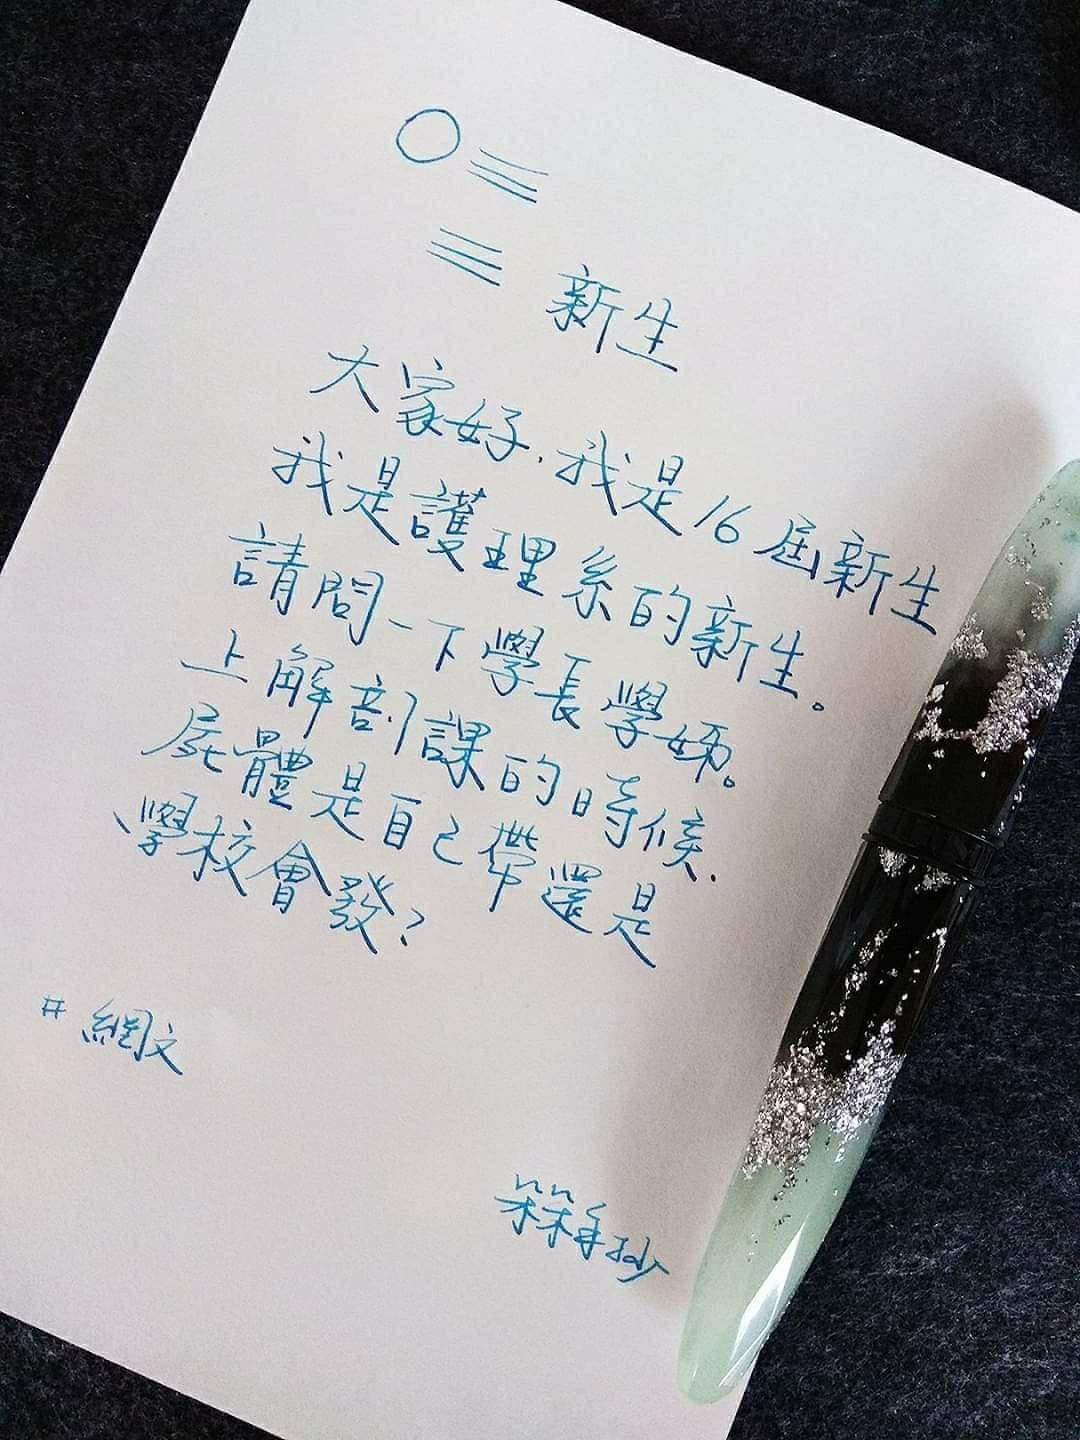 新生
大家好，我是16屆新生
我是護理系的新生。
請問一下學長學姊。
上解剖課的時候，
屍體是自己帶還是
學校會發？
#網文
箂箂手抄